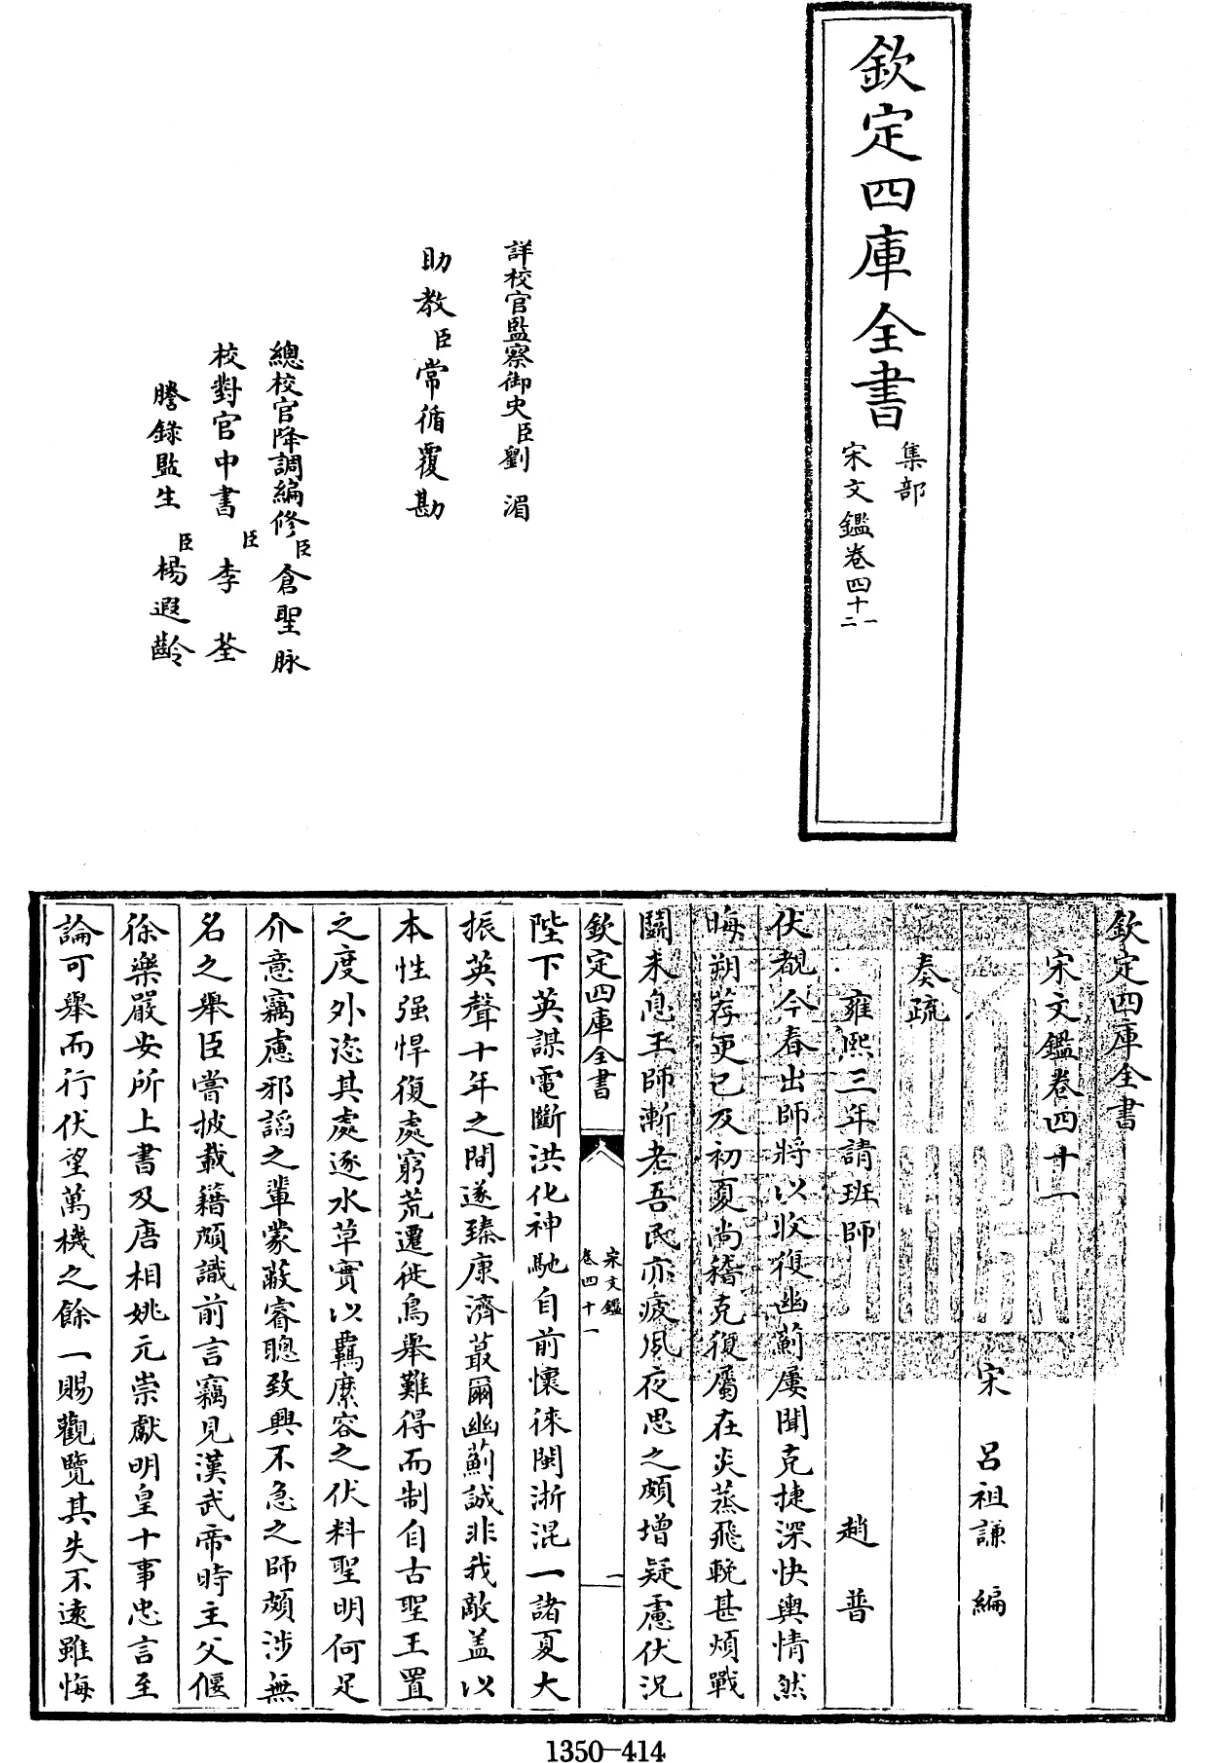 欽定四庫全書
集部
宋文鑑卷四十一
二
詳校官監察御史臣劉湄
助教臣常循覆勘
總校官降調編修臣倉聖脉
校對官中書臣李荃
謄錄監生臣楊遐齡
欽定四庫全書
宋文鑑卷四十一
宋 呂祖謙 編
奏疏
雍熙三年請班師 趙普
伏覩今春出師將以收復幽薊屢聞克捷深快輿情然
晦朔荐更已及初夏尚稽克復屬在炎蒸飛輓甚煩戰
鬭未息王師漸老吾民亦疲夙夜思之頗增疑慮伏況
欽定四庫全書
宋文鑑
卷四十一
一
陛下英謀電斷洪化神馳自前懷徠閩浙混一諸夏大
振英聲十年之間遂臻康濟蕞爾幽薊誠非我敵盖以
本性强悍復處窮荒遷徙鳥舉難得而制自古聖王置
之度外恣其處逐水草實以羈縻容之伏料聖明何足
介意竊慮邪謟之輩蒙蔽睿聰致興不急之師頗涉無
名之舉臣嘗披載籍頗識前言竊見漢武帝時主父偃
徐樂嚴安所上書及唐相姚元崇獻明皇十事忠言至
論可舉而行伏望萬機之餘一賜觀覽其失不遠雖悔
1350-414